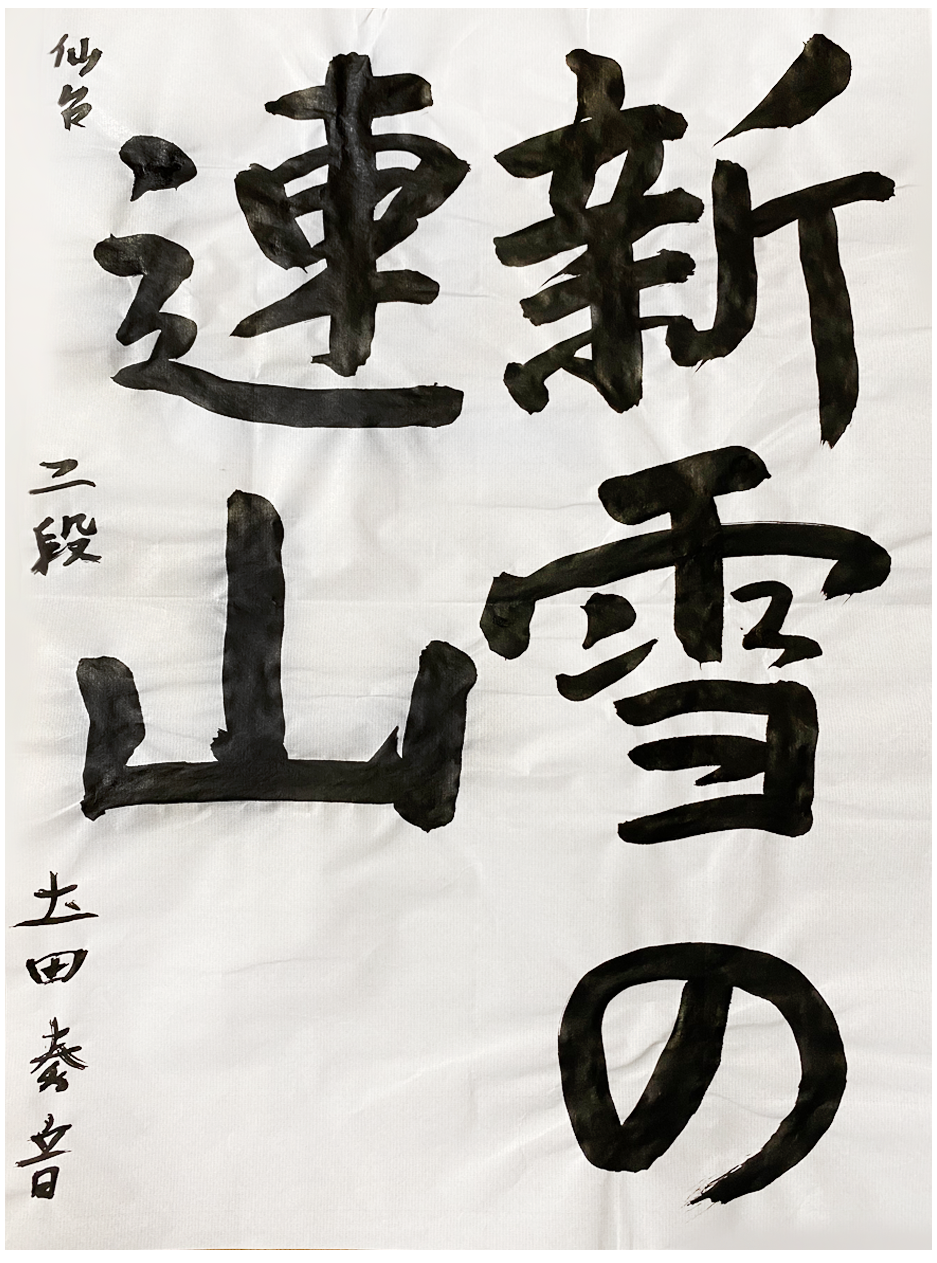 新雪の
連山
仙台 二段 土田奏音